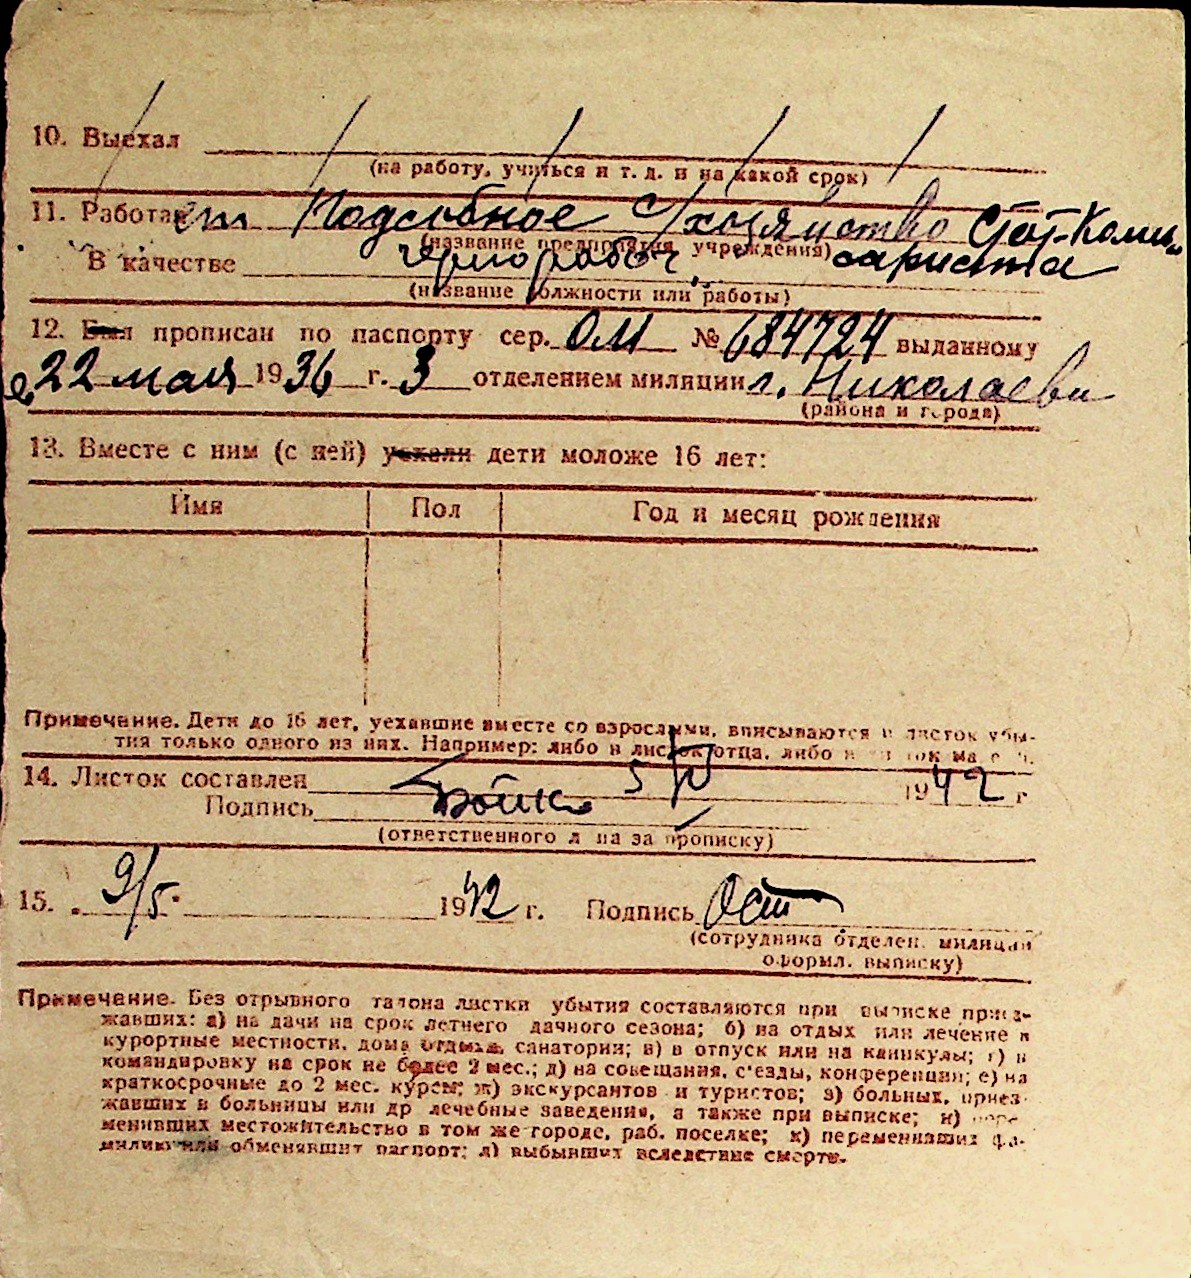 10. Выехал
(на работу, учиться и т. д. и на какой срок)
11. Работает Подсобное с/хозяйство
(название предприятия, учреждения)
В качестве чернорабоч.
(название должности или работы)
12. Был прописан по паспорту сер. ОМ № 684724 выданному
22 мая 1936 г. 3 отделением милиции г. Николаева
(района и города)
13. Вместе с ним (с ней) уехали дети моложе 16 лет:
Имя Пол Год и месяц рождения
Примечание. Дети до 16 лет, уехавшие вместе со взрослыми, вписываются в листок убы-
тия только одного из них. Например: либо в листок отца, либо в листок ма
14. Листок составлен 5/V 1942 г
Подпись Бойко
(ответственного лица за прописку)
15. 9/5. 1942 г. Подпись
(сотрудника отделен. милиции
оформл. выписку)
Примечание. Без отрывного талона листки убытия составляются при выписке приез-
жавших: а) на дачи на срок летнего дачного сезона; б) на отдых или лечение в
курортные местности, дома отдыха, санатории; в) в отпуск или на каникулы; г) в
командировку на срок не более 2 мес.; д) на совещания, с'езды, конференции; е) на
краткосрочные до 2 мес. курсы; ж) экскурсантов и туристов; з) больных, приез-
жавших в больницы или др лечебные заведения, а также при выписке; и) пере-
менивших местожительство в том же городе, раб. поселке; к) переменивших фа-
милию или обменявших паспорт; л) выбывших вследствие смерти.